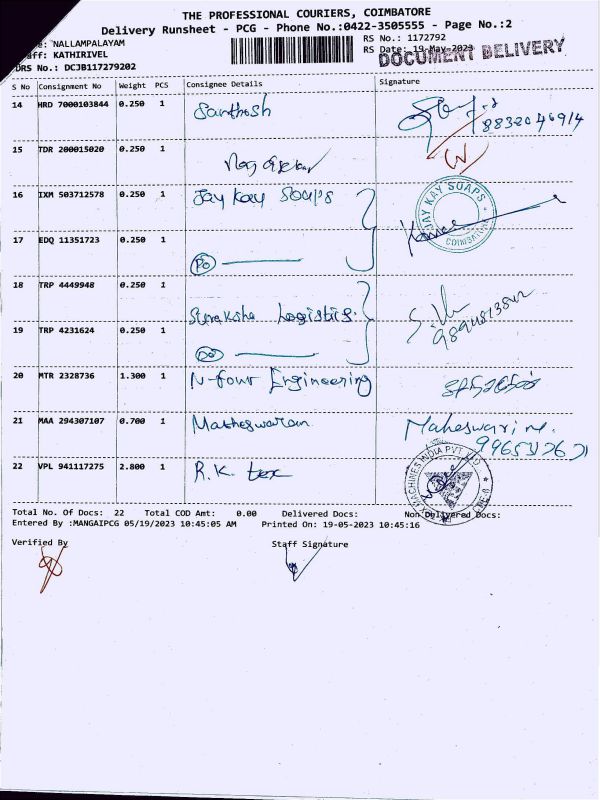 THE PROFESSIONAL COURIERS, COIMBATORE
Delivery Runsheet - PCG - Phone No.:0422-3505555 - Page No.:2
e: NALLAMPALAYAM
aff: KATHIRIVEL
DRS No.: DCJB117279202
RS No.: 1172792
RS Date: 19-May-2023
DOCUMENT DELIVERY
S No Consignment No Weight PCS Consignee Details Signature
14 HRD 7000103844 0.250 1 Santhosh
15 TDR 200015020 0.250 1
16 IXM 503712578 0.250 1 Jay Kay Soaps
JAY KAY SOAPS
COIMBATORE
17 EDQ 11351723 0.250 1 Do
18 TRP 4449948 0.250 1 Suraksha Logistics.
19 TRP 4231624 0.250 1 Do
20 MTR 2328736 1.300 1 N-four Engineering
21 MAA 294307107 0.700 1 Matheswaran Maheswari
22 VPL 941117275 2.800 1 R.K. tex
MACHINES INDIA PVT LTD
Total No. Of Docs: 22 Total COD Amt: 0.00 Delivered Docs: Non Delivered Docs:
Entered By :MANGAIPCG 05/19/2023 10:45:05 AM Printed On: 19-05-2023 10:45:16
Verified By Staff Signature